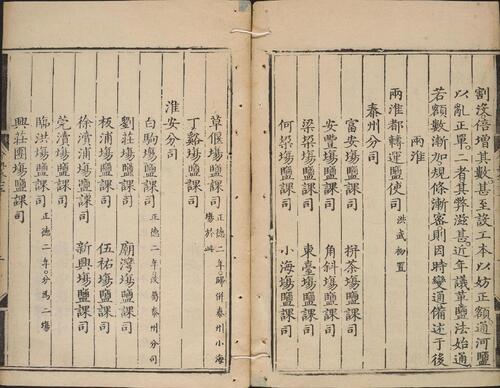 割沒倍增其數甚至設工本以妨正額通河鹽
以亂正單二者其弊滋甚近年議革鹽法始通
若額數漸加規條漸密則因時變通備述于後
兩淮
兩淮都轉運鹽使司 洪武初置
泰州分司
富安塲鹽課司 栟茶塲鹽課司
安豐塲鹽課司 角斜塲鹽課司
梁垜塲鹽課司 東臺塲鹽課司
何垜塲鹽課司 小海塲鹽課司
草偃塲鹽課司 正德二年歸併泰州小海塲於此
丁谿塲鹽課司
淮安分司
白駒塲鹽課司 正德二年改屬泰州分司
劉莊塲鹽課司 廟灣塲鹽課司
板浦塲鹽課司 伍祐塲鹽課司
徐瀆浦塲鹽課司 新興塲鹽課司
莞瀆塲鹽課司
臨洪塲鹽課司 正德二年分爲二塲
興莊團塲鹽課司